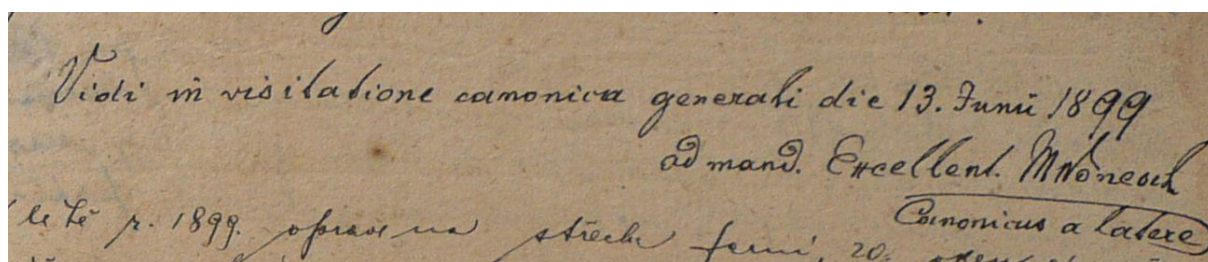 Vidi in visitatione canonica generali die 13. Junii 1899
ad mand. Excellent.
Canonicus a latere
letě r. 1899. opravena střecha farní, 20.